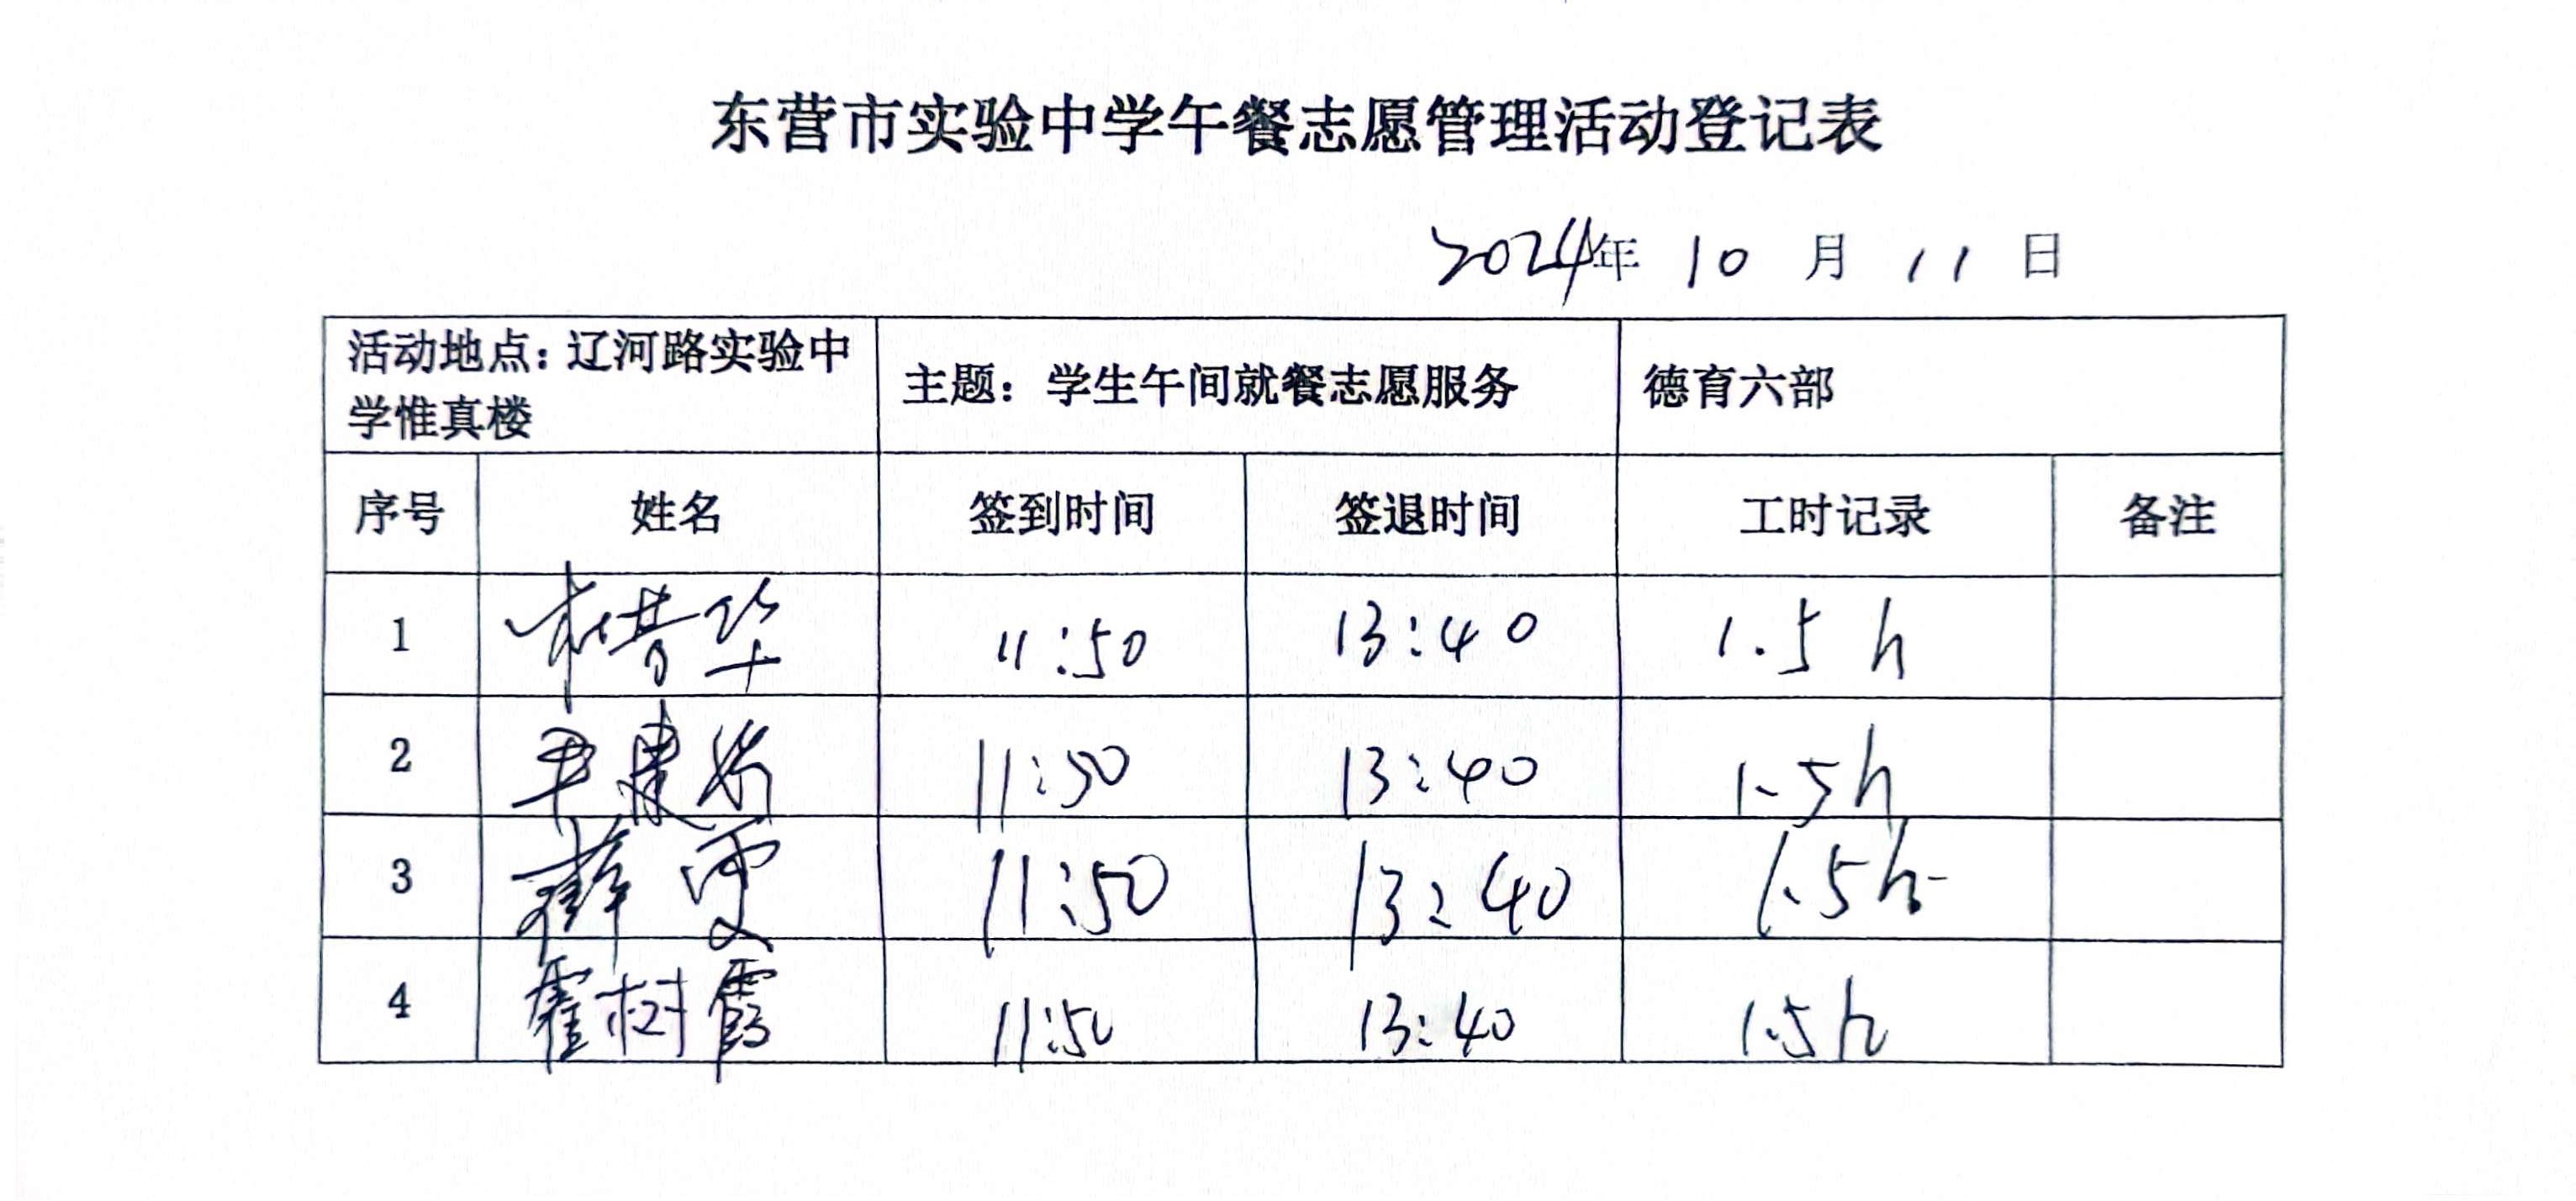 东营市实验中学午餐志愿管理活动登记表
2024年 10 月 11 日
活动地点：辽河路实验中
学惟真楼
主题：学生午间就餐志愿服务
德育六部
序号 姓名 签到时间 签退时间 工时记录 备注
1 11:50 13:40 1.5 h
2 11:50 13:40 1.5h
3 薛雯 11:50 13:40 1.5h
4 霍树霞 11:50 13:40 1.5h